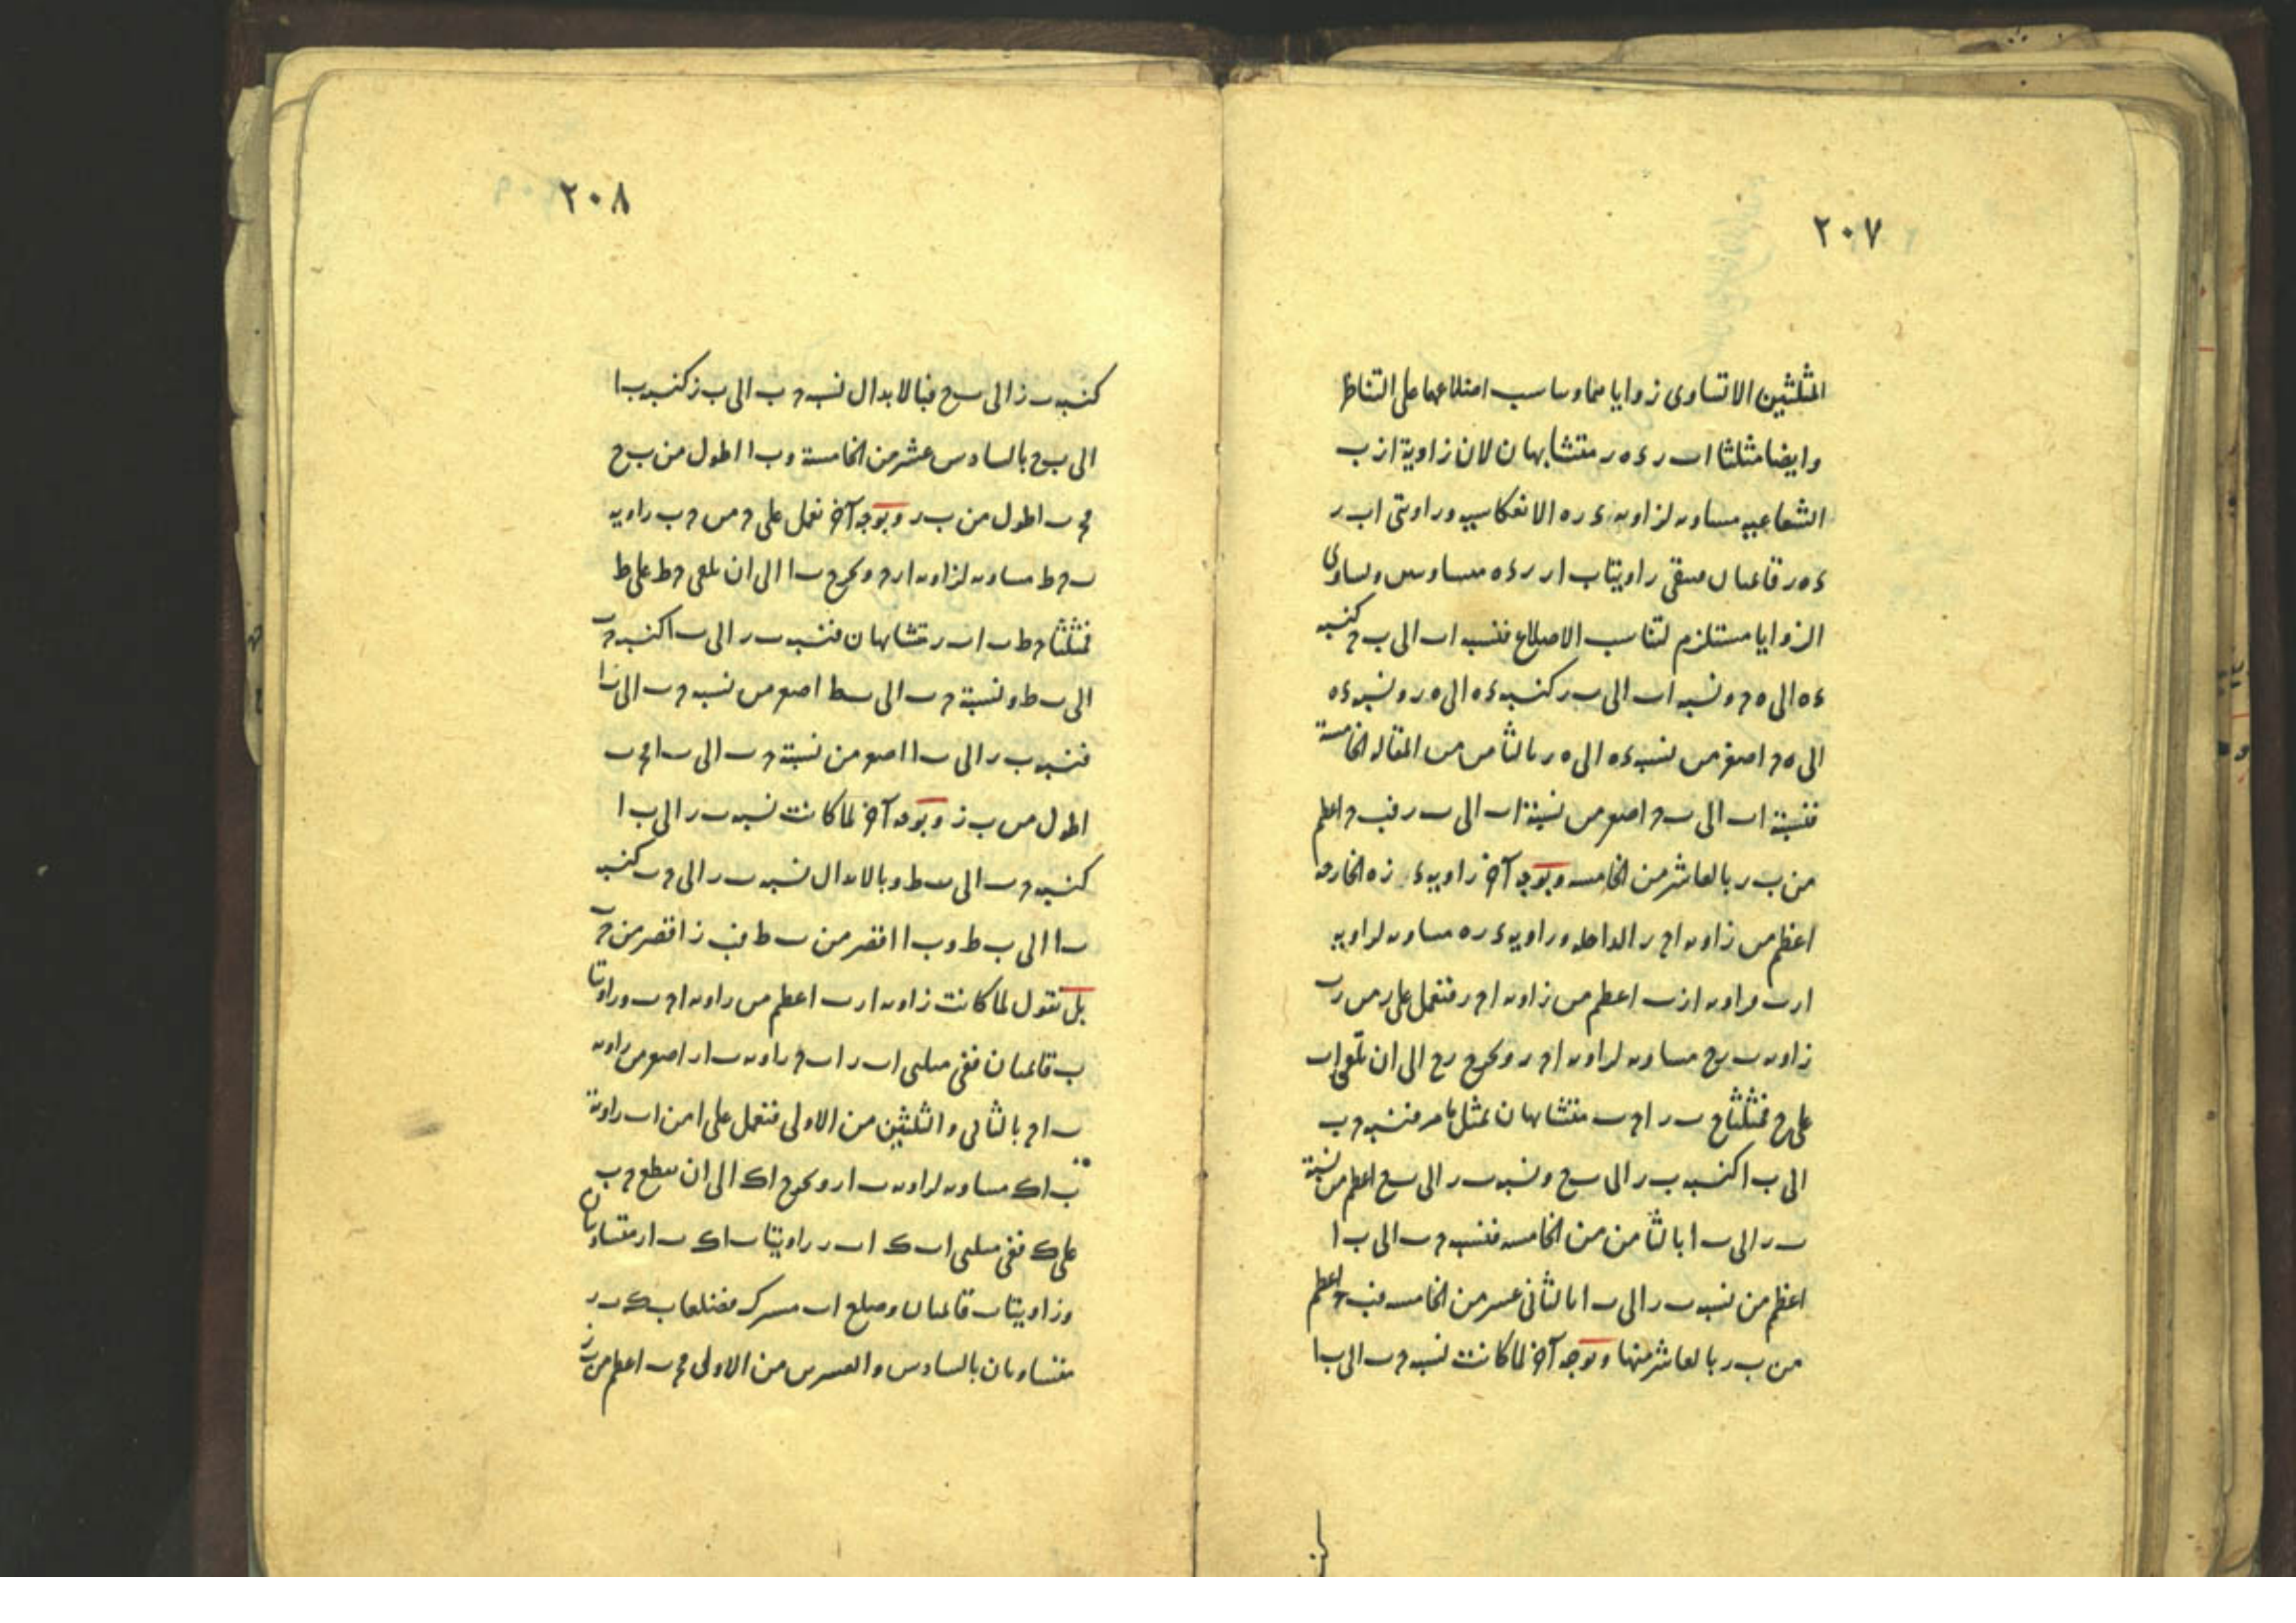 ٢٠٧
المثلثين الا تساوى زواياهما وتناسب اضلاعهما على التناظر
وايضا مثلثا ا ب ر ء ه ر متشابهان لان زاوية ا ز ب
الشعاعيه مساويه لزاويه ء ر ه الانعكاسيه وزاويتى ا ب ر
ء ه ر قائمتان فبقى زاويتا ب ا ر ر ء ه متساويتين وتساوى
الزوايا مستلزم لتناسب الاضلاع فنسبه ا ب الى ب ح كنسبه
ء ه الى ه ح ونسبه ا ب الى ب ر كنسبه ء ه الى ه ر ونسبه ء ه
الى ه ح اصغر من نسبه ء ه الى ه ر بالثامن من المقاله الخامسة
فنسبة ا ب الى ب ح اصغر من نسبة ا ب الى ب ر فب ح اعظم
من ب ر بالعاشر من الخامسه وبوجه آخر زاويه ء ز ه الخارجه
اعظم من زاويه ا ح ر الداخله وزاويه ء ر ه مساويه لزاويه
ا ر ب فزاويه ا ز ب اعظم من زاويه ا ح ر فنعمل على ر من ر ب
زاويه ب ر ح مساويه لزاويه ا ح ر ونخرج ر ح الى ان تلقى ا ب
على ح فمثلثا ح ب ر ا ح ب متشابهان بمثل ما مر فنسبه ح ب
الى ب ا كنسبه ب ر الى ب ح ونسبه ب ر الى ب ح اعظم من نسبة
ب ر الى ب ا بالثامن من الخامسه فنسبه ح ب الى ب ا
اعظم من نسبه ب ر الى ب ا بالثانى عشر من الخامسه فب ح اعظم
من ب ر بالعاشر منها وبوجه آخر لما كانت نسبه ح ب الى ب ا
٢٠٨
كنسبه ب ز الى ب ح فبالابدال نسبه ح ب الى ب ز كنسبه ب ا
الى ب ح بالسادس عشر من الخامسة و ب ا اطول من ب ح
فح ب اطول من ب ر وبوجه آخر نعمل على ح من ح ب زاويه
ب ح ط مساويه لزاويه ا ر ح ونخرج ب ا الى ان تلقى ح ط على ط
فمثلثا ح ط ب ا ب ر متشابهان فنسبه ب ر الى ب ا كنسبه ح ب
الى ب ط ونسبة ح ب الى ب ط اصغر من نسبه ح ب الى ب ا
فنسبه ب ر الى ب ا اصغر من نسبة ح ب الى ب ا فح ب
اطول من ب ز وبوجه آخر لما كانت نسبه ب ر الى ب ا
كنسبه ح ب الى ب ط وبالابدال نسبه ب ر الى ح ب كنسبه
ب ا الى ب ط و ب ا اقصر من ب ط فب ز اقصر من ح ب
بل نقول لما كانت زاويه ا ر ب اعظم من زاويه ا ح ب وزاويتا
ب قائمتان ففى مثلثى ا ب ر ا ب ح زاويه ب ا ر اصغر من زاويه
ب ا ح بالثانى والثلثين من الاولى فنعمل على ا من ا ب زاوية
ب ا ك مساويه لزاويه ب ا ر ونخرج ا ك الى ان يقطع ح ب
على ك ففى مثلثى ا ب ك ا ب ر زاويتا ب ا ك ب ا ر متساويتان
وزاويتا ب قائمتان وضلع ا ب مشترك فضلعا ب ك ب ر
متساويان بالسادس والعشرين من الاولى فح ب اعظم من ب ز